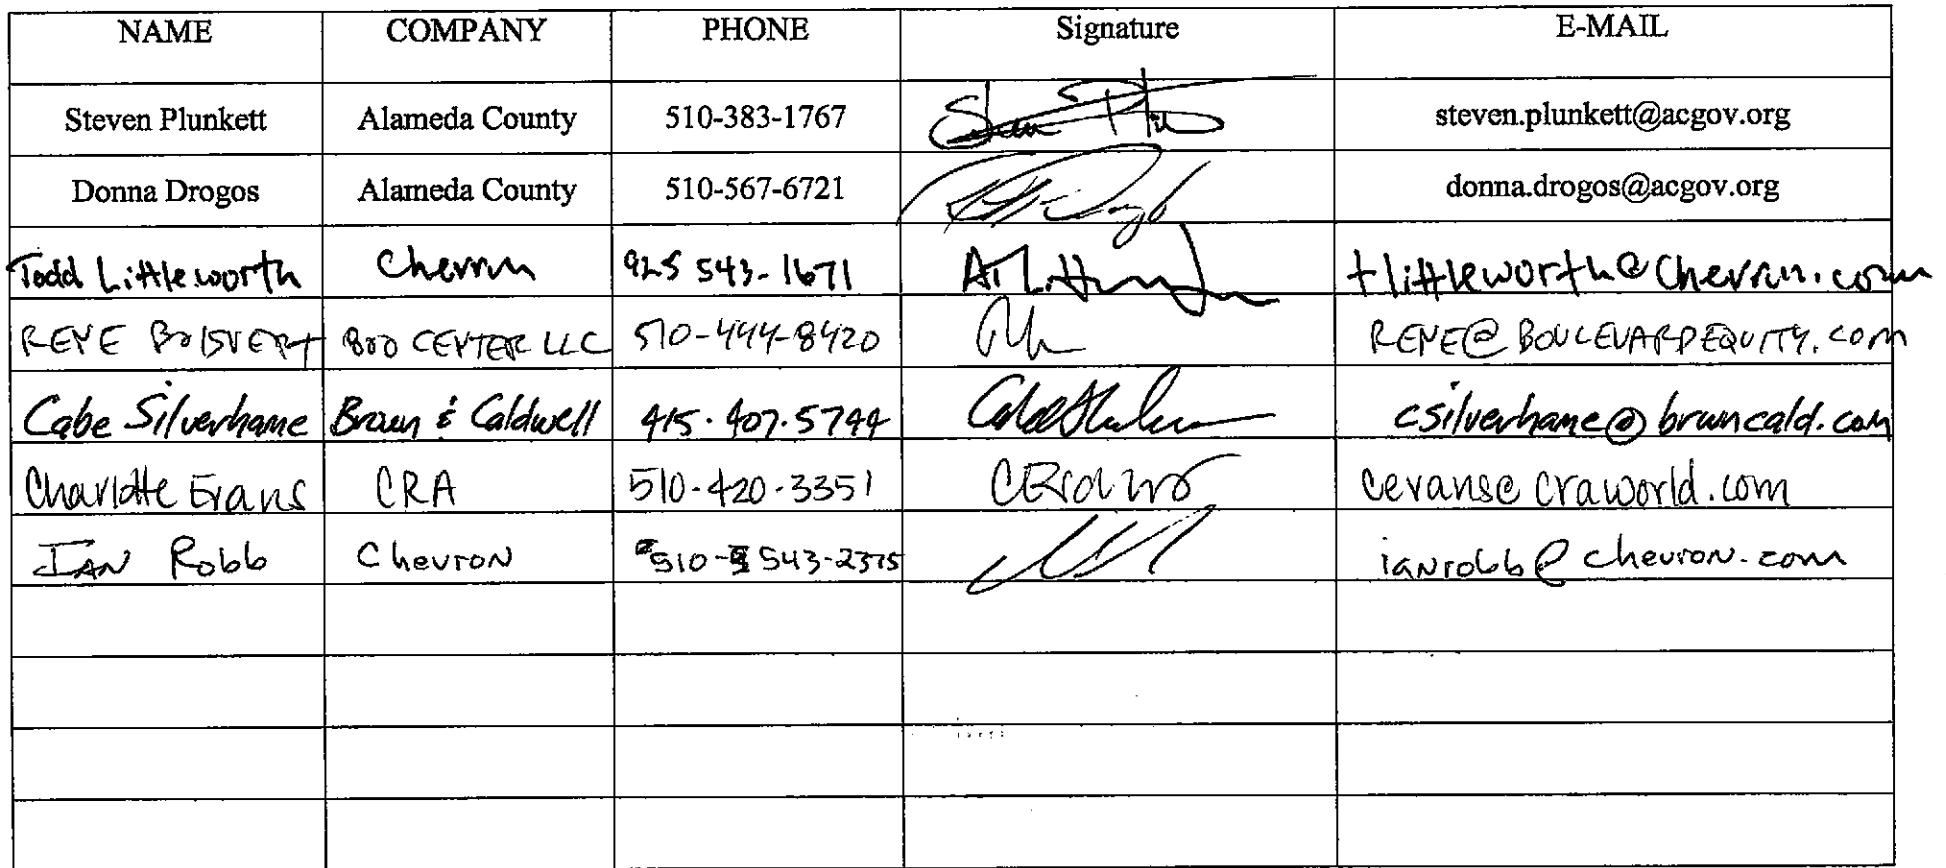 NAME COMPANY PHONE Signature E-MAIL
Steven Plunkett Alameda County 510-383-1767 steven.plunkett@acgov.org
Donna Drogos Alameda County 510-567-6721 donna.drogos@acgov.org
Todd Littleworth Chevron 925 543-1671 tlittleworth@chevron.com
RENE BOISVERT 800 CENTER LLC 510-444-8420 RENE@BOULEVARDEQUITY.COM
Cabe Silverhame Brown & Caldwell 415.407.5744 csilverhame@brwncald.com
Charlotte Evans CRA 510-420-3351 cevans@craworld.com
IAN Robb Chevron 510-543-2375 ianrobb@chevron.com